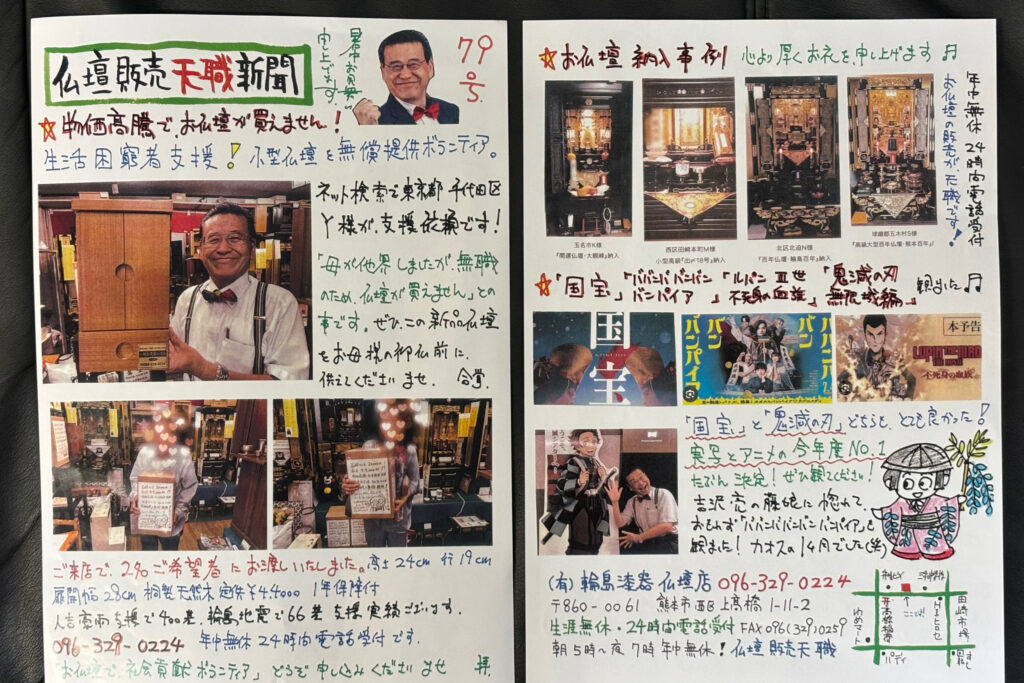 仏壇販売天職新聞
79号
☆物価高騰で、お仏壇が買えません!
生活困窮者支援!小型仏壇を無償提供ボランティア。
ネット検索で東京都千代田区
Y様が、支援依頼です!
「母が他界しましたが、無職
のため、仏壇が買えません」との
事です。ぜひ、この新品仏壇
をお母様の御仏前に、
供えてくださいませ。合掌。
ご来店で、2名ご希望者にお渡しいたしました。高さ24cm 行19cm
扉開幅28cm 桐製天然木 定価¥44000 1年保障付
人吉豪雨支援で400基、輪島地震で66基支援実績ございます。
096-329-0224 年中無休24時間電話受付です。
「お仏壇で、社会貢献ボランティア」どうぞ申し込みくださいませ 拝、
☆お仏壇納入事例 心より厚くお礼を申し上げます♬
年中無休 24時間電話受付
お仏壇の販売が、天職です!
玉名市K様
『開運仏壇・大観峰』納入
西区田崎本町M様
小型高級『出〆18号』納入
北区北迫N様
『百年仏壇・輪島百年』納入
球磨郡五木村S様
『高級大型百年仏壇・熊本百年』
☆「国宝」「ババンババンバンバンパイア」「ルパン三世 不死身の血族」「鬼滅の刃 無限城編」観ました♬
国宝
ババンババンバンバンパイア
本予告
LUPIN THE IIIRD
不死身の血族
「国宝」と「鬼滅の刃」どちらも、とても良かった!
実写とアニメの今年度No.1
たぶん決定!ぜひ観てください!
吉沢亮の藤娘に惚れて、
おもわず「ババンババンバンバンパイア」も
観ました!カオスの1ヶ月でした(笑)
(有)輪島漆器仏壇店 096-329-0224
〒860-0061 熊本市西区上高橋1-11-2
生涯無休・24時間電話受付 FAX096(329)0259
朝5時〜夜7時 年中無休!仏壇販売天職
田崎市場